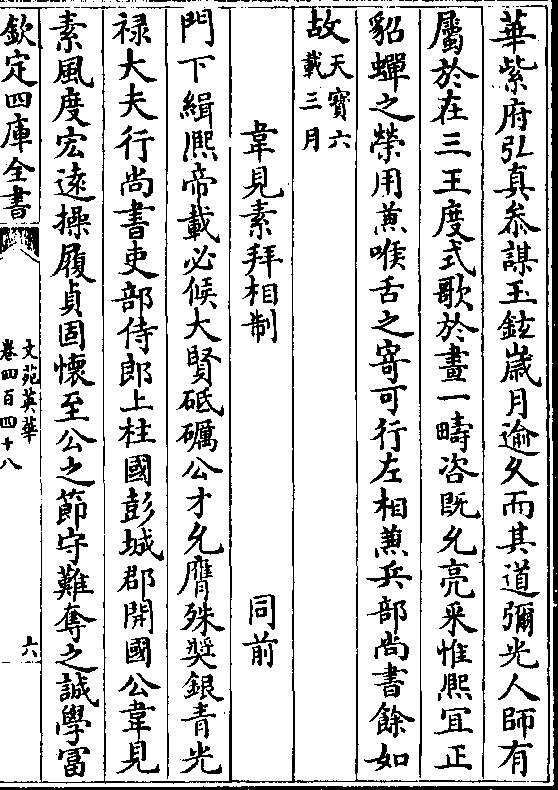 華紫府弘真叅謀玉鉉歳月逾久而其道彌光人師有
屬於在三王度式歌於畫一疇咨既允亮采惟熙宜正
貂蟬之榮用兼喉舌之寄可行左相兼兵部尚書餘如
故天寳六載三月
韋見素拜相制 同前
門下緝熈帝載必候大賢砥礪公才允膺殊奬銀青光
禄大夫行尚書吏部侍郎上柱國彭城郡開國公韋見
素風度宏逺操履貞固懷至公之節守難奪之誠學冨
欽定四庫全書
文苑英華
卷四百四十八
六